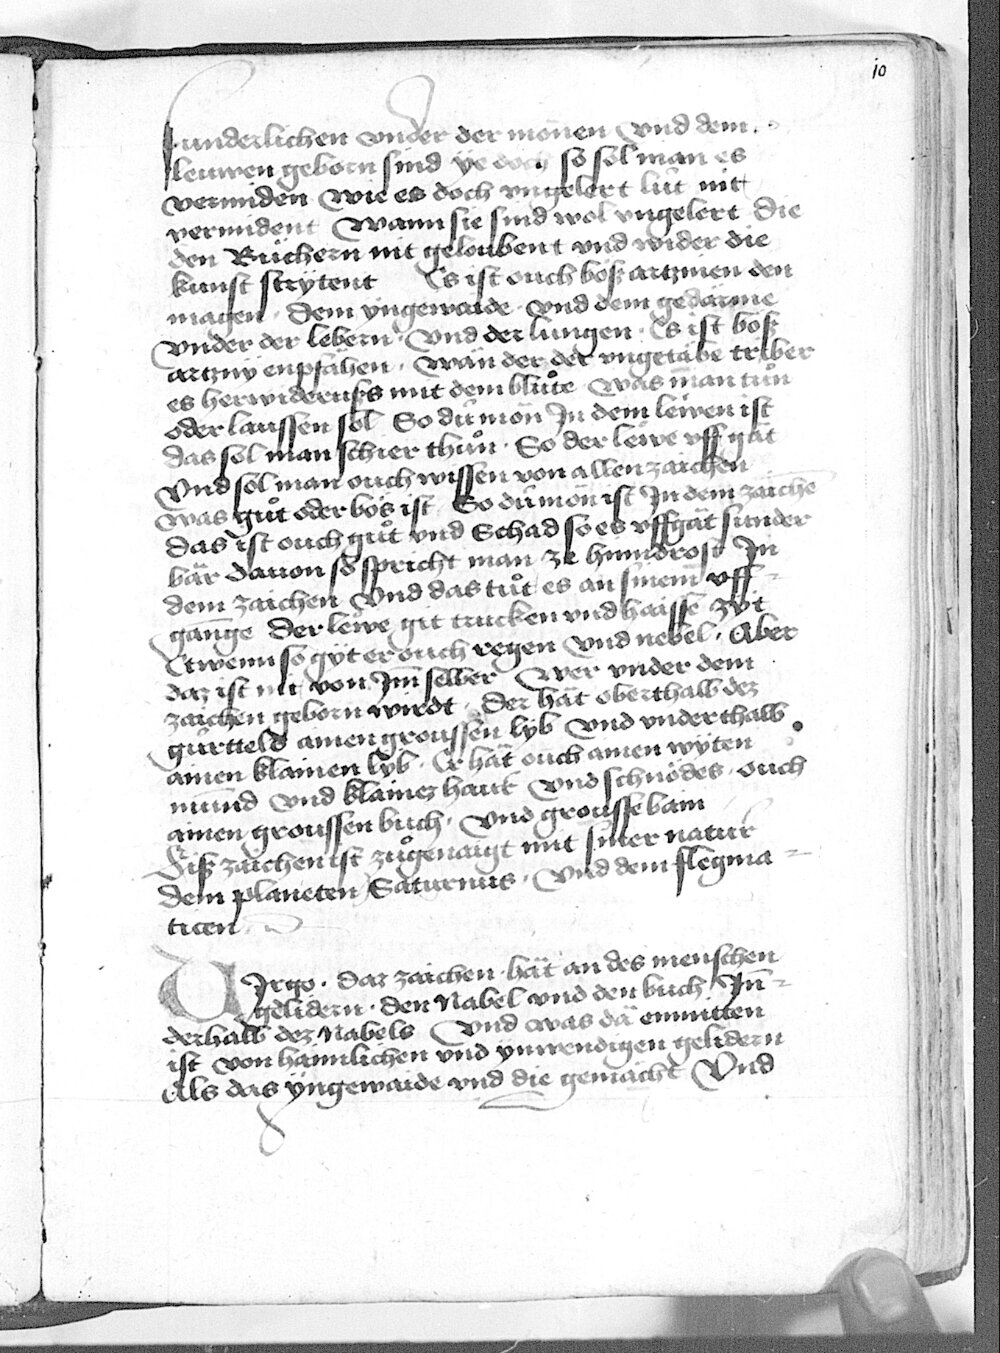 10
sunderlichen vnder der mönen vnd dem
leuwen geborn sind ye doch so sol man es
vermiden wie es doch vngelert lüt nit
vermident Wann sie sind wol vngelert die
den Büchern nit geloubent vnd wider die
kunst strÿtent Es ist ouch böß artznien den
magen . dem yngewaide . vnd dem gedärme
vnder der lebern . vnd der lungen . Es ist böß
artzny enpfahen . wän der der vngetäbe triber
es herwiderufß mit dem blůte was man tůn
oder laussen sol So dü mön In dem lewen ist
das sol man schier thůn . So der lewe vff gät
Vnd sol man ouch wissen von allen zaichen
was gůt oder bös ist So dü mön ist In dem zaichē
das ist ouch gůt vnd Schad so es vffgät sunder
bär dauon so spricht man ze In
dem zaichen Vnd das tůt es an sinem vff-
gange Der lewe git trucken vnd haisse zyt
Etwenn so gyt er ouch regen vnd nebel . Aber
daz ist nit von Im selber Wer vnder dem
zaichen geborn wirdt . Der hät oberthalb dez
gürttels ainen groussen lyb vnd vnderthalb
ainen klainen lyb . Er hät ouch ainen wyten
mund vnd klainez haut vnd schnödes . ouch
ainen groussen buch . vnd grousse bain
Diß zaichen ist zůgenaigt mit siner natur
dem planeten Saturnus . Vnd dem flegma-
ticen
VIrgo . daz zaichen hät an des menschen
gelidern . den Nabel vnd den buch In-
derhalb dez Nabels Vnd was da enmitten
ist von hainlichen vnd ynwendigen gelidern
Als das yngewaide vnd die gemächt Vnd